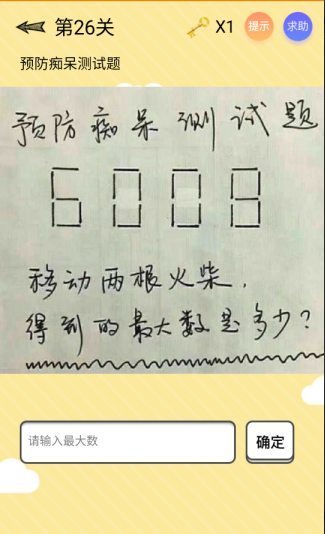 第26关
X1
提示
求助
预防痴呆测试题
预防痴呆测试题
6008
移动两根火柴，
得到的最大数是多少？
请输入最大数
确定